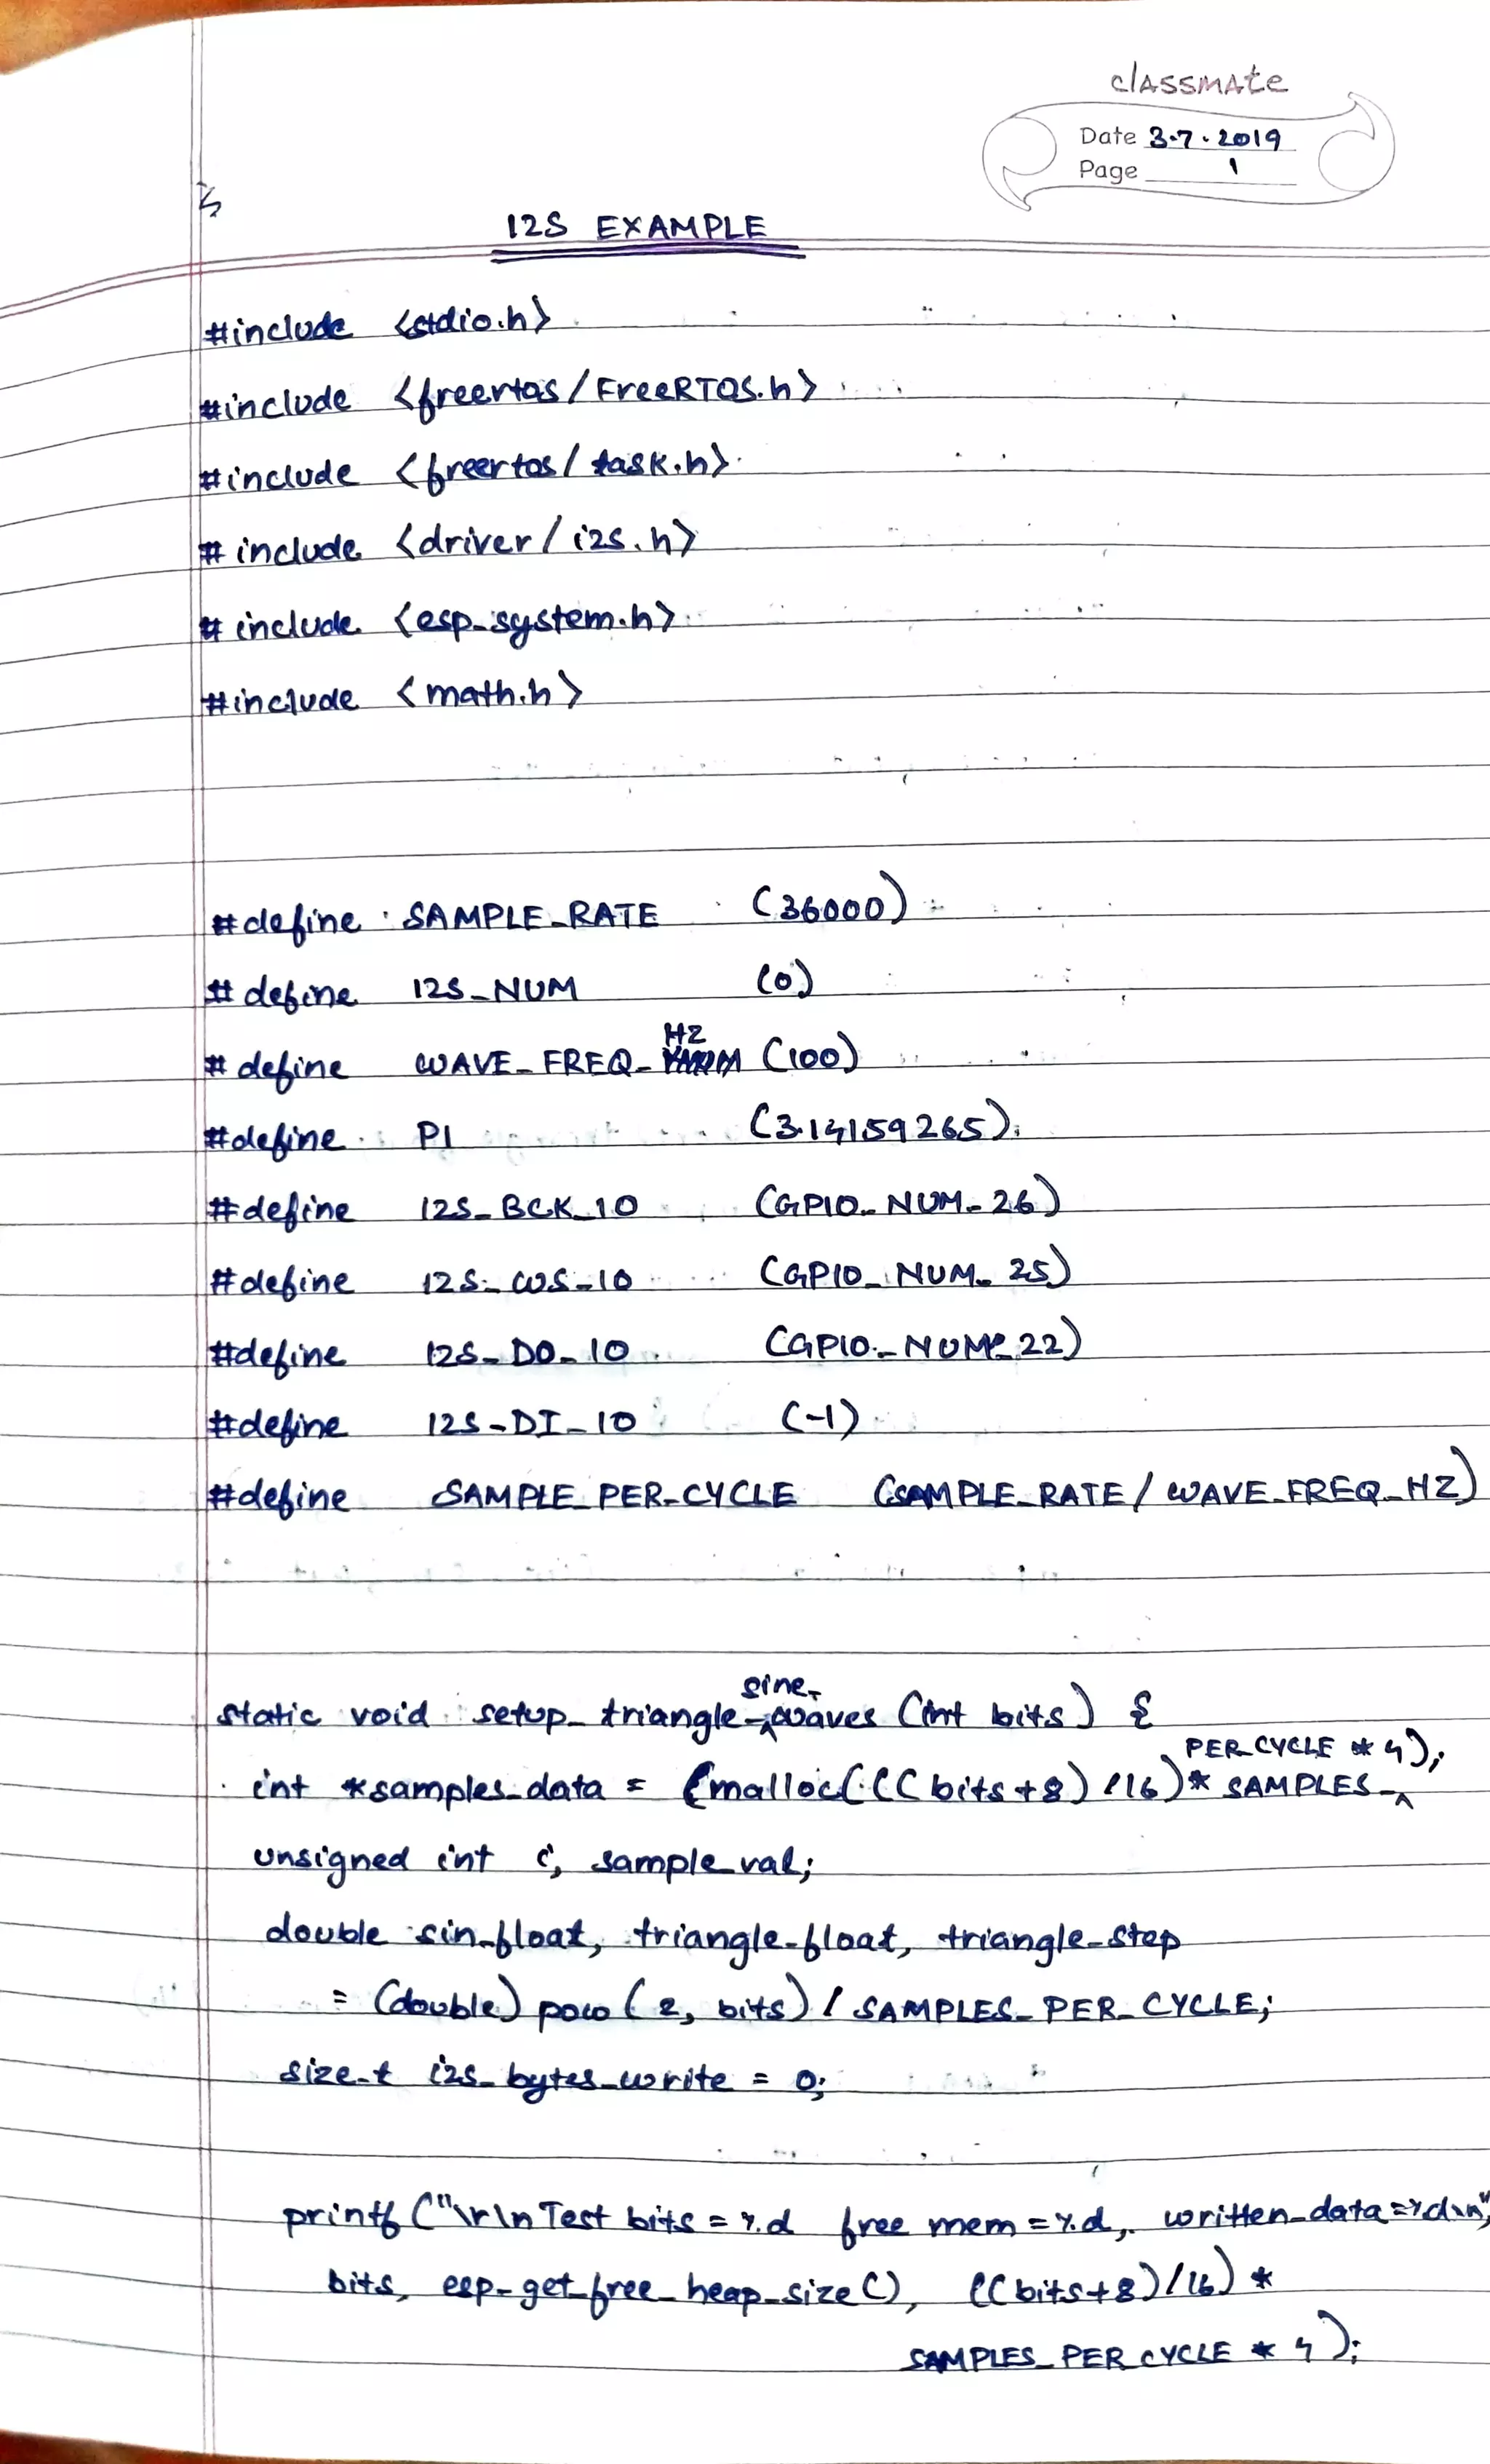 classmate
Date 3.7.2019
Page 1
I2S EXAMPLE
#include <stdio.h>
#include <freertos/FreeRTOS.h>
#include <freertos/task.h>
#include <driver/i2s.h>
#include <esp_system.h>
#include <math.h>
#define SAMPLE_RATE (36000)
#define I2S_NUM (0)
#define WAVE_FREQ_HZ (100)
#define PI (3.14159265)
#define I2S_BCK_IO (GPIO_NUM_26)
#define I2S_WS_IO (GPIO_NUM_25)
#define I2S_DO_IO (GPIO_NUM_22)
#define I2S_DI_IO (-1)
#define SAMPLE_PER_CYCLE (SAMPLE_RATE / WAVE_FREQ_HZ)
static void setup_triangle_sine_waves (int bits) {
int *samples_data = malloc(((bits+8)/16)* SAMPLES_PER_CYCLE * 4);
unsigned int i, sample_val;
double sin_float, triangle_float, triangle_step
= (double) pow (2, bits) / SAMPLES_PER_CYCLE;
size_t i2s_bytes_write = 0;
printf ("\r\n Test bits = %d free mem = %d, written_data=%d\n",
bits, esp_get_free_heap_size(), ((bits+8)/16) *
SAMPLES_PER_CYCLE * 4);